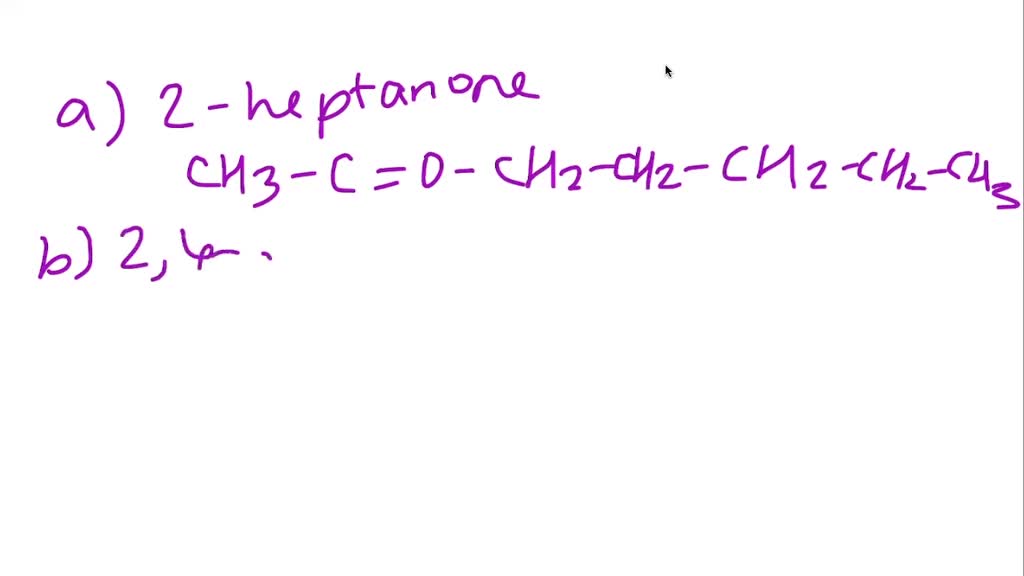 a) 2-heptanone
CH3-C=O-CH2-CH2-CH2-CH2-CH3
b) 2,4-